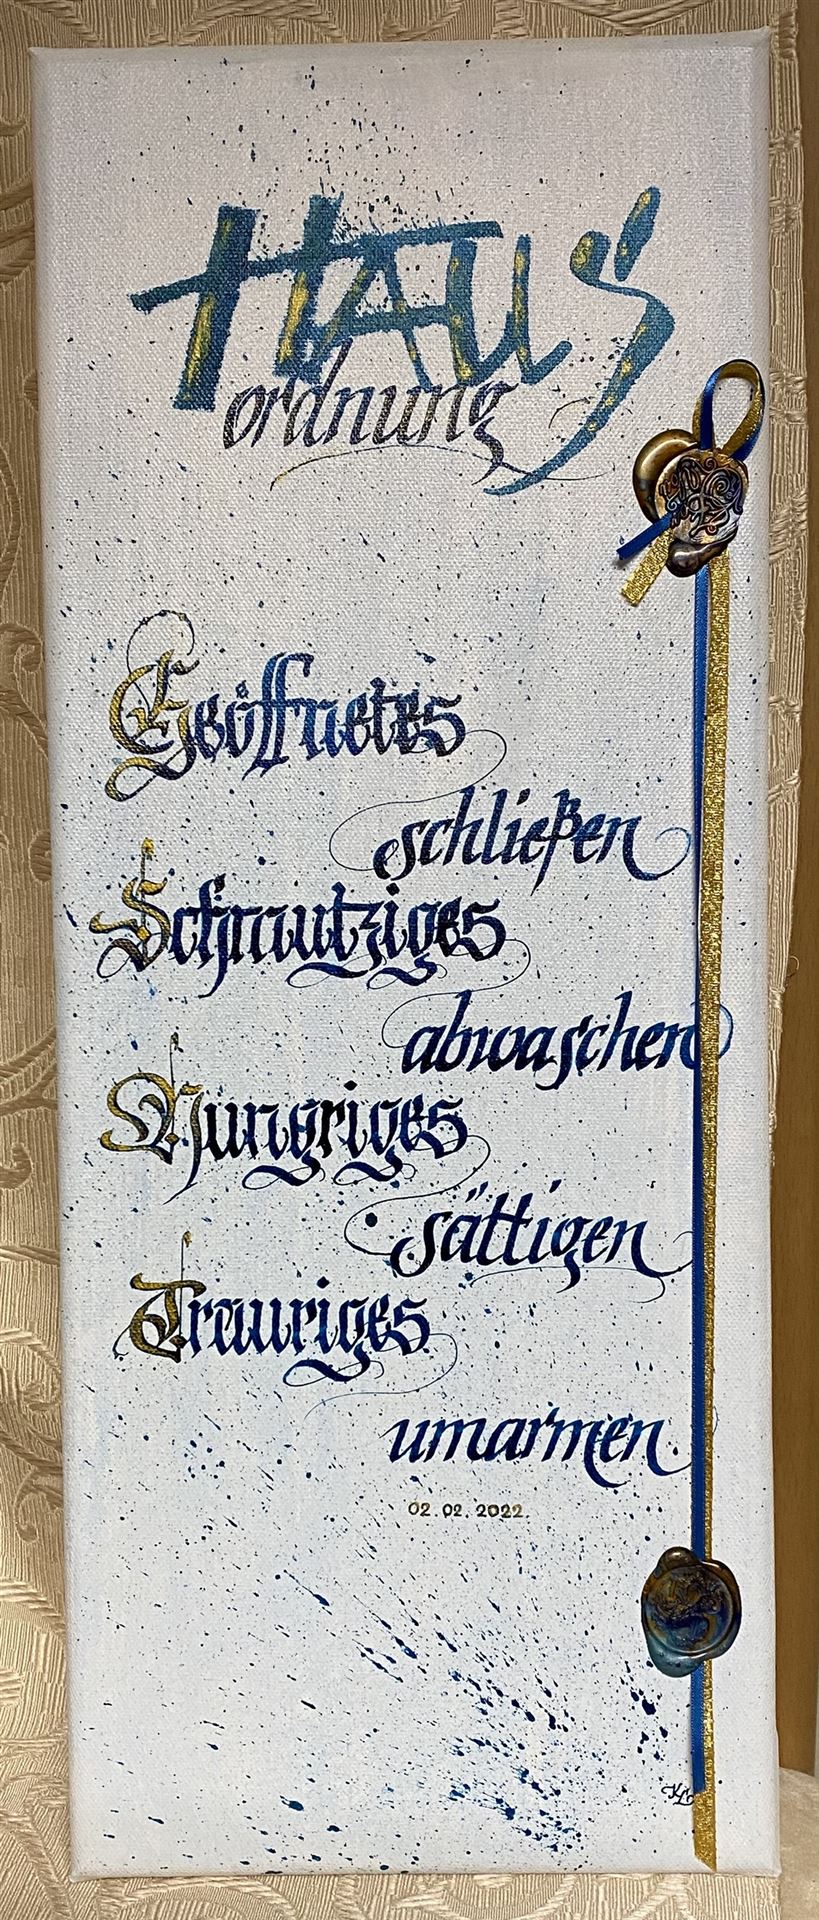 HAUS
ordnung
Geöffnetes
schließen
Schmutziges
abwaschen
Hungriges
sättigen
Trauriges
umarmen
02.02.2022.